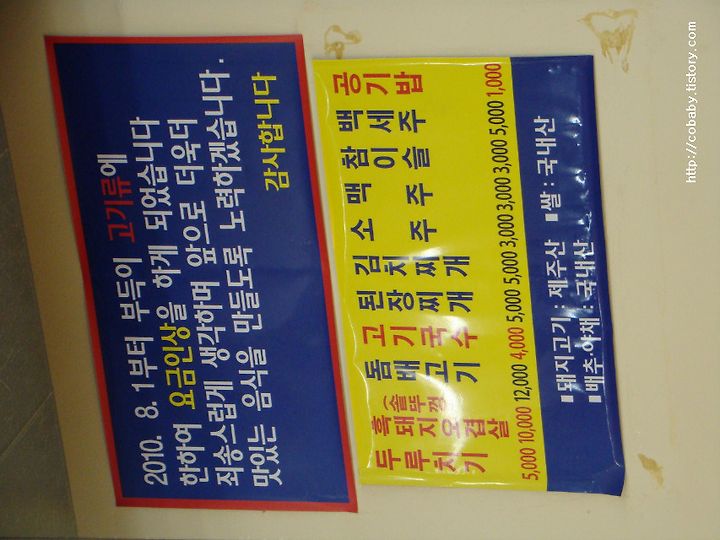 2010. 8. 1부터 부득이 고기류에
한하여 요금인상을 하게 되었습니다
죄송스럽게 생각하며 앞으로 더욱더
맛있는 음식을 만들도록 노력하겠습니다.
감사합니다
두루치기
흑돼지오겹살
(솥뚜껑)
돔배고기
고기국수
된장찌개
김치찌개
소주
맥주
참이슬
백세주
공기밥
5,000 10,000 12,000 4,000 5,000 5,000 3,000 3,000 3,000 5,000 1,000
■돼지고기 : 제주산 ■쌀 : 국내산
■배추.야채 : 국내산
http://cobaby.tistory.com